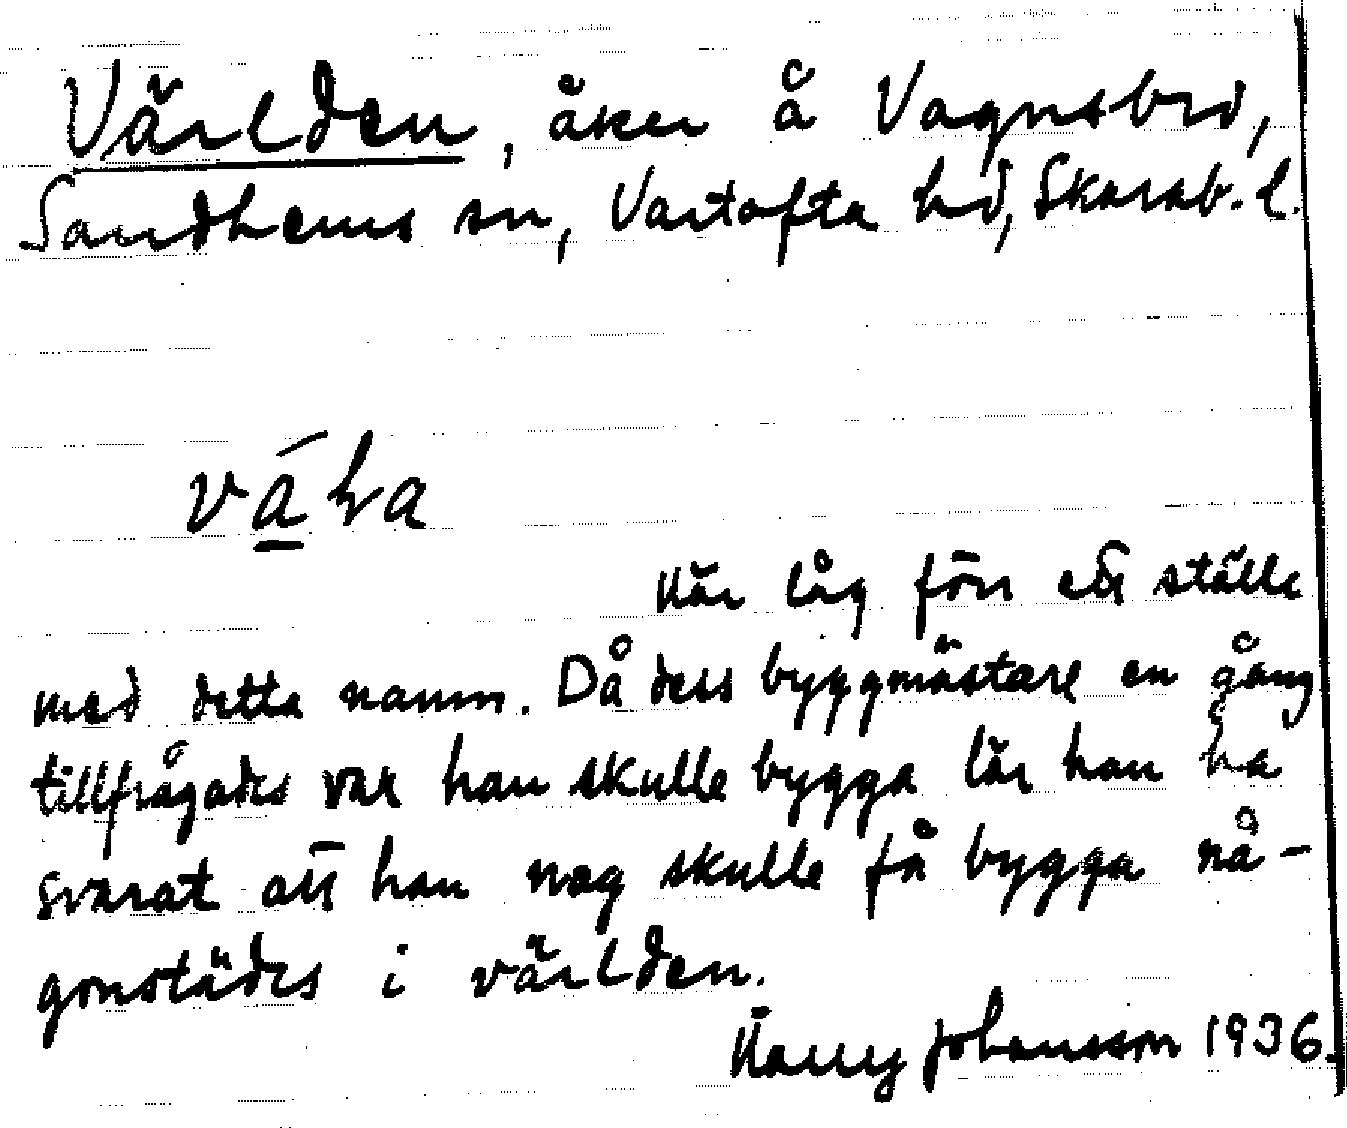 Världen, åker å Vagnsbro,
Sandhems sn, Vartofta hd, Skarab. l.
Här låg förr ett ställe
med detta namn. Då dess byggmästare en gång
tillfrågades var han skulle bygga lär han ha
svarat att han nog skulle få bygga nå-
gonstädes i världen.
Harry Johansson 1936.